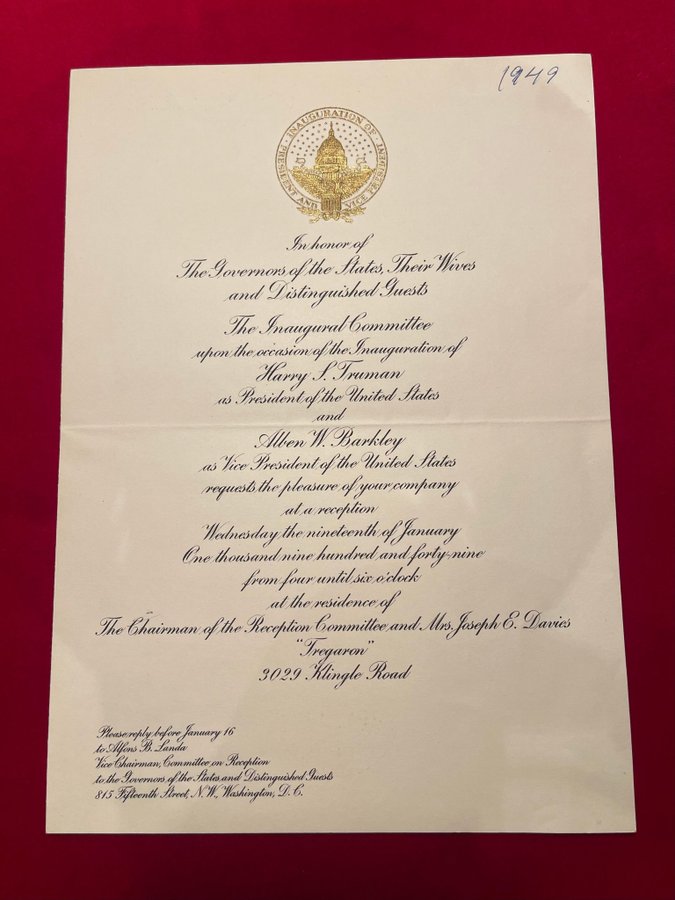 1949
INAUGURATION OF PRESIDENT AND VICE PRESIDENT
In honor of
The Governors of the States, Their Wives
and Distinguished Guests
The Inaugural Committee
upon the occasion of the Inauguration of
Harry S. Truman
as President of the United States
and
Alben W. Barkley
as Vice President of the United States
requests the pleasure of your company
at a reception
Wednesday the nineteenth of January
One thousand nine hundred and forty-nine
from four until six o'clock
at the residence of
The Chairman of the Reception Committee and Mrs. Joseph E. Davies
"Tregaron"
3029 Klingle Road
Please reply before January 16
to Alfons B. Landa
Vice Chairman, Committee on Reception
to the Governors of the States and Distinguished Guests
815 Fifteenth Street, N.W., Washington, D.C.